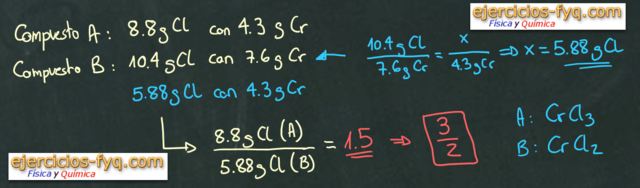 ejercicios-fyq.com
Física y Química
Compuesto A: 8.8 g Cl con 4.3 g Cr
Compuesto B: 10.4 g Cl con 7.6 g Cr
10.4 g Cl / 7.6 g Cr = x / 4.3 g Cr ⇒ x = 5.88 g Cl
5.88 g Cl con 4.3 g Cr
8.8 g Cl (A) / 5.88 g Cl (B) = 1.5 ⇒ 3/2
A: CrCl3
B: CrCl2
ejercicios-fyq.com
Física y Química